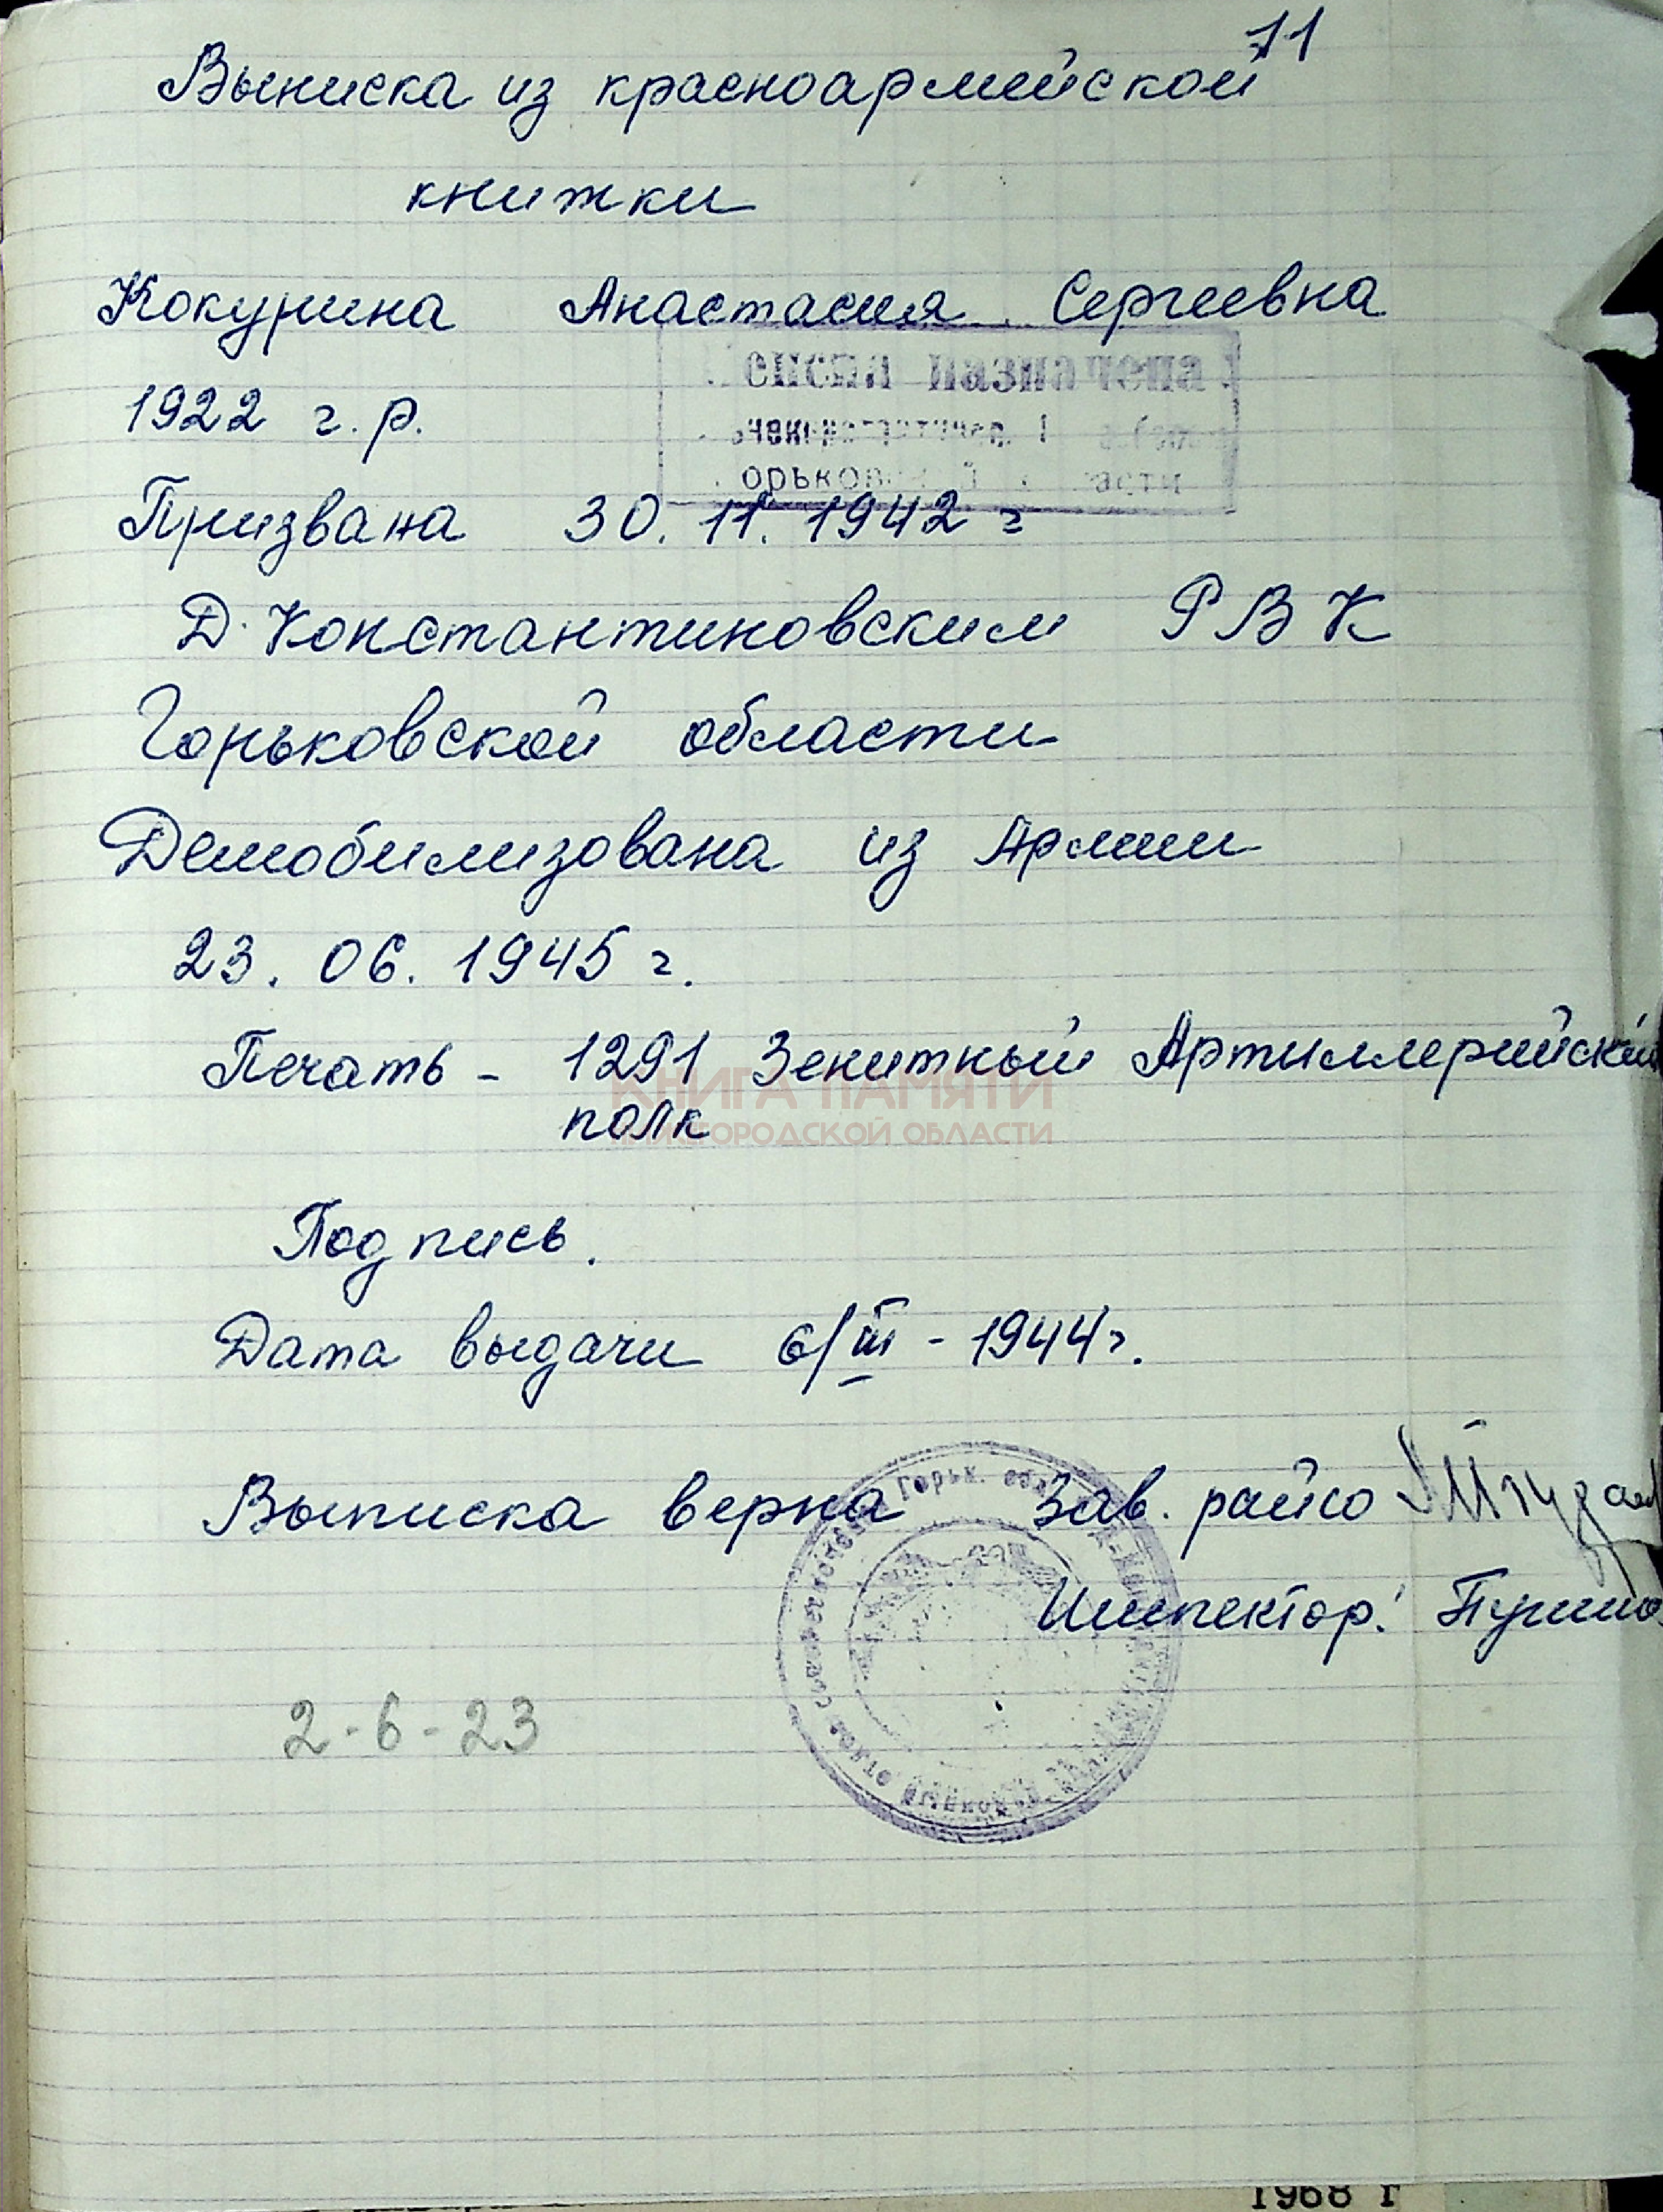 11
Выписка из красноармейской
книжки
Кокурина Анастасия Сергеевна
енсия назначена
1922 г.р.
орьков й асти
Призвана 30.11.1942 г
Д.Константиновским РВК
Горьковской области
Демобилизована из Армии
23.06.1945 г.
Печать - 1291 Зенитный Артиллерийский
КНИГА ПАМЯТИ
полк
НИЖЕГОРОДСКОЙ ОБЛАСТИ
Подпись.
Дата выдачи 6/III - 1944 г.
Горьк.
Выписка верна Зав. райсо
Инспектор:
2-6-23
1968 г